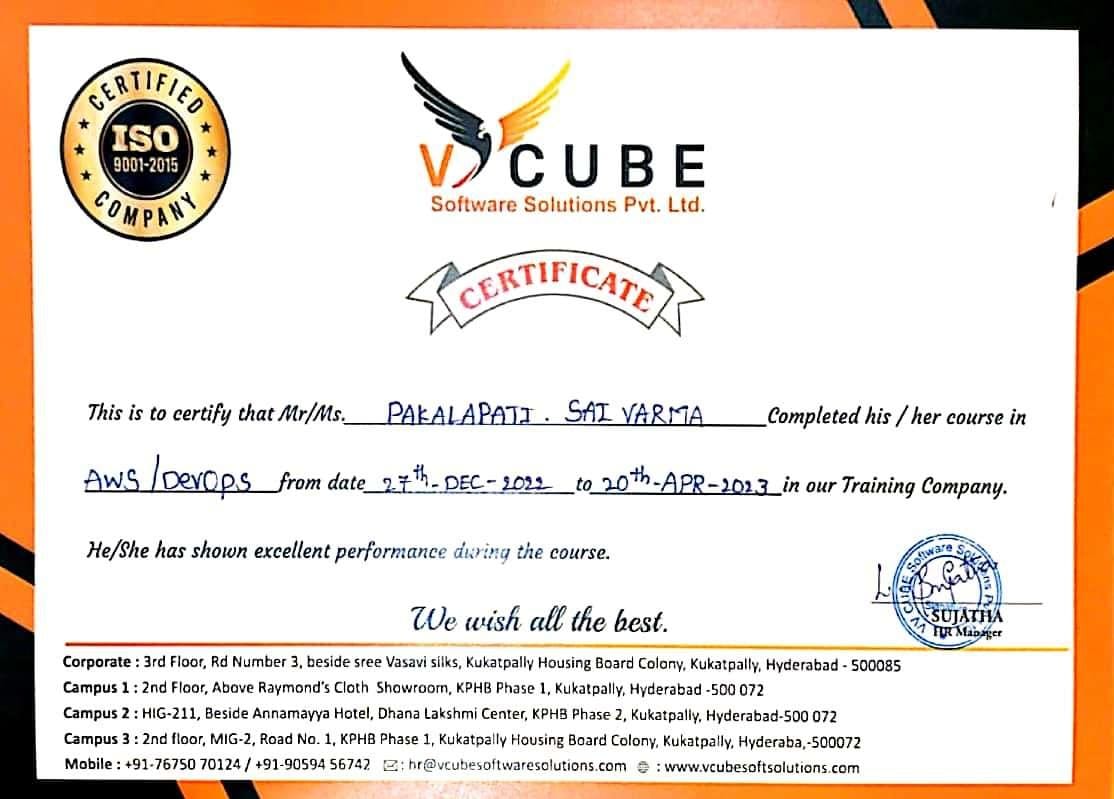 CERTIFIED
ISO
9001-2015
COMPANY
V CUBE
Software Solutions Pvt. Ltd.
CERTIFICATE
This is to certify that Mr/Ms. PAKALAPATI . SAI VARMA Completed his / her course in
AWS/DevOps from date 27th-DEC-2022 to 20th-APR-2023 in our Training Company.
He/She has shown excellent performance during the course.
We wish all the best.
SUJATHA
HR Manager
Corporate : 3rd Floor, Rd Number 3, beside sree Vasavi silks, Kukatpally Housing Board Colony, Kukatpally, Hyderabad - 500085
Campus 1 : 2nd Floor, Above Raymond's Cloth Showroom, KPHB Phase 1, Kukatpally, Hyderabad -500 072
Campus 2 : HIG-211, Beside Annamayya Hotel, Dhana Lakshmi Center, KPHB Phase 2, Kukatpally, Hyderabad-500 072
Campus 3 : 2nd floor, MIG-2, Road No. 1, KPHB Phase 1, Kukatpally Housing Board Colony, Kukatpally, Hyderaba,-500072
Mobile : +91-76750 70124 / +91-90594 56742 : hr@vcubesoftwaresolutions.com : www.vcubesoftsolutions.com